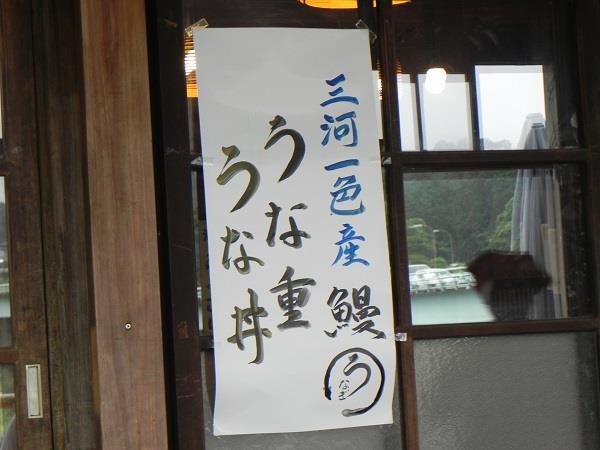 三河一色産 鰻
うなぎ
うな重
うな丼